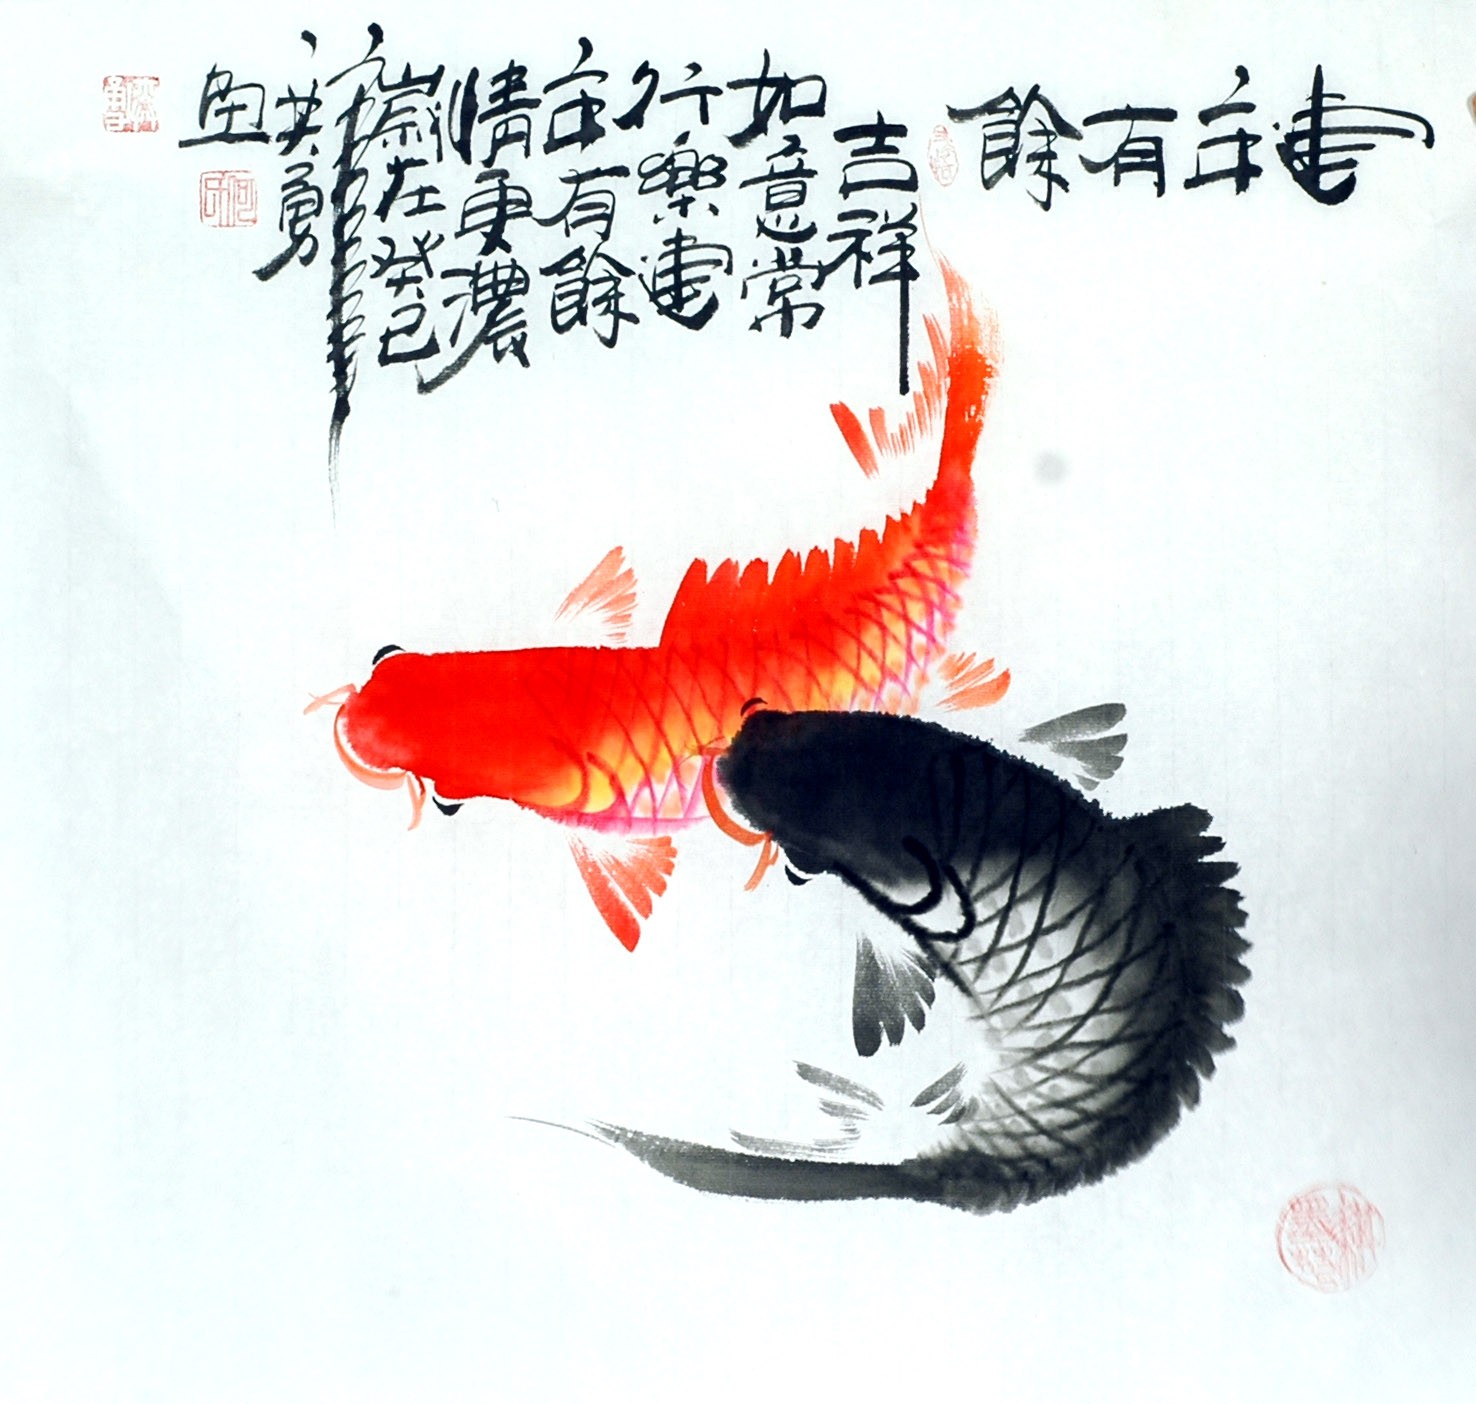 連年有餘
吉祥
如意常
行樂連
年有餘
情更濃
歲在癸巳
英勇
画